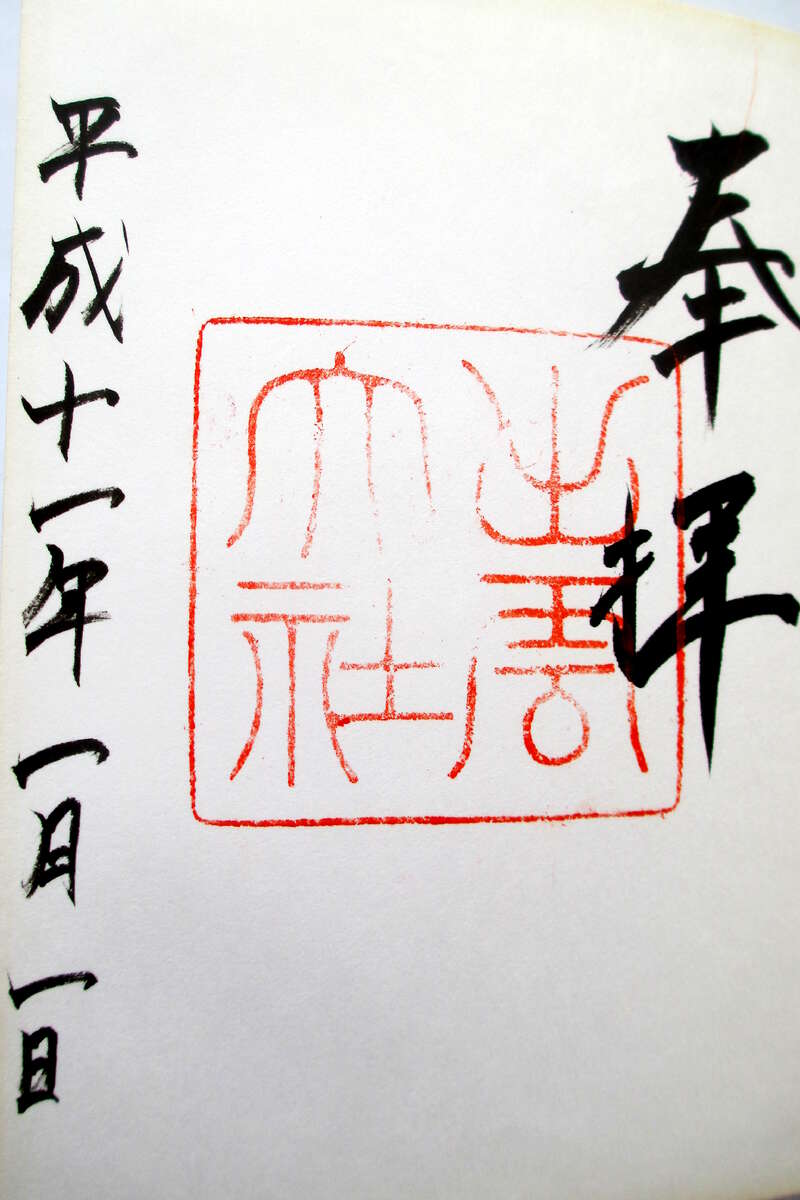 奉拝
出雲大社
平成十一年一月一日